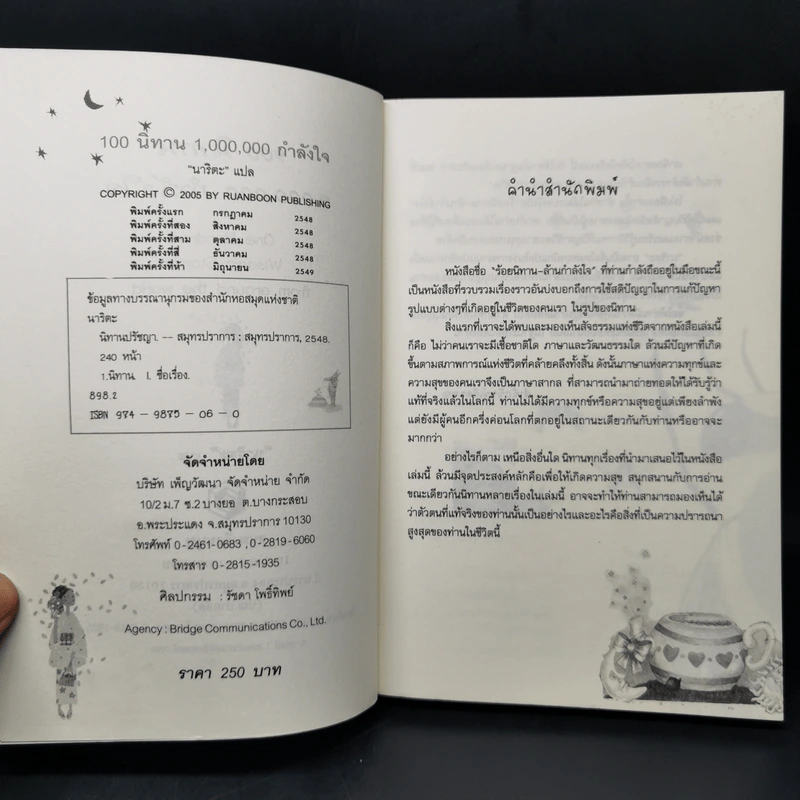 100 นิทาน 1,000,000 กำลังใจ
"นาริตะ" แปล
COPYRIGHT © 2005 BY RUANBOON PUBLISHING
พิมพ์ครั้งแรก กรกฎาคม 2548
พิมพ์ครั้งที่สอง สิงหาคม 2548
พิมพ์ครั้งที่สาม ตุลาคม 2548
พิมพ์ครั้งที่สี่ ธันวาคม 2548
พิมพ์ครั้งที่ห้า มิถุนายน 2549
ข้อมูลทางบรรณานุกรมของสำนักหอสมุดแห่งชาติ
นาริตะ
นิทานปรัชญา. -- สมุทรปราการ : สมุทรปราการ, 2548.
240 หน้า
1.นิทาน. I. ชื่อเรื่อง.
898.2
ISBN 974 - 9875 - 06 - 0
จัดจำหน่ายโดย
บริษัท เพ็ญวัฒนา จัดจำหน่าย จำกัด
10/2 ม.7 ซ.2 บางยอ ต.บางกระสอบ
อ.พระประแดง จ.สมุทรปราการ 10130
โทรศัพท์ 0-2461-0683 , 0-2819-6060
โทรสาร 0-2815-1935
ศิลปกรรม : รัชดา โพธิ์ทิพย์
Agency : Bridge Communications Co., Ltd.
ราคา 250 บาท
คำนำสำนักพิมพ์
หนังสือชื่อ "ร้อยนิทาน-ล้านกำลังใจ" ที่ท่านกำลังถืออยู่ในมือขณะนี้
เป็นหนังสือที่รวบรวมเรื่องราวอันบ่งบอกถึงการใช้สติปัญญาในการแก้ปัญหา
รูปแบบต่างๆที่เกิดอยู่ในชีวิตของคนเรา ในรูปของนิทาน
สิ่งแรกที่เราจะได้พบและมองเห็นสัจธรรมแห่งชีวิตจากหนังสือเล่มนี้
ก็คือ ไม่ว่าคนเราจะมีเชื้อชาติใด ภาษาและวัฒนธรรมใด ล้วนมีปัญหาที่เกิด
ขึ้นตามสภาพการณ์แห่งชีวิตที่คล้ายคลึงทั้งสิ้น ดังนั้นภาษาแห่งความทุกข์และ
ความสุขของคนเราจึงเป็นภาษาสากล ที่สามารถนำมาถ่ายทอดให้ได้รับรู้ว่า
แท้ที่จริงแล้วในโลกนี้ ท่านไม่ได้มีความทุกข์หรือความสุขอยู่แต่เพียงลำพัง
แต่ยังมีผู้คนอีกครึ่งค่อนโลกที่ตกอยู่ในสถานะเดียวกันกับท่านหรืออาจจะ
มากกว่า
อย่างไรก็ตาม เหนือสิ่งอื่นใด นิทานทุกเรื่องที่นำมาเสนอไว้ในหนังสือ
เล่มนี้ ล้วนมีจุดประสงค์หลักคือเพื่อให้เกิดความสุข สนุกสนานกับการอ่าน
ขณะเดียวกันนิทานหลายเรื่องในเล่มนี้ อาจจะทำให้ท่านสามารถมองเห็นได้
ว่าตัวตนที่แท้จริงของท่านนั้นเป็นอย่างไรและอะไรคือสิ่งที่เป็นความปรารถนา
สูงสุดของท่านในชีวิตนี้